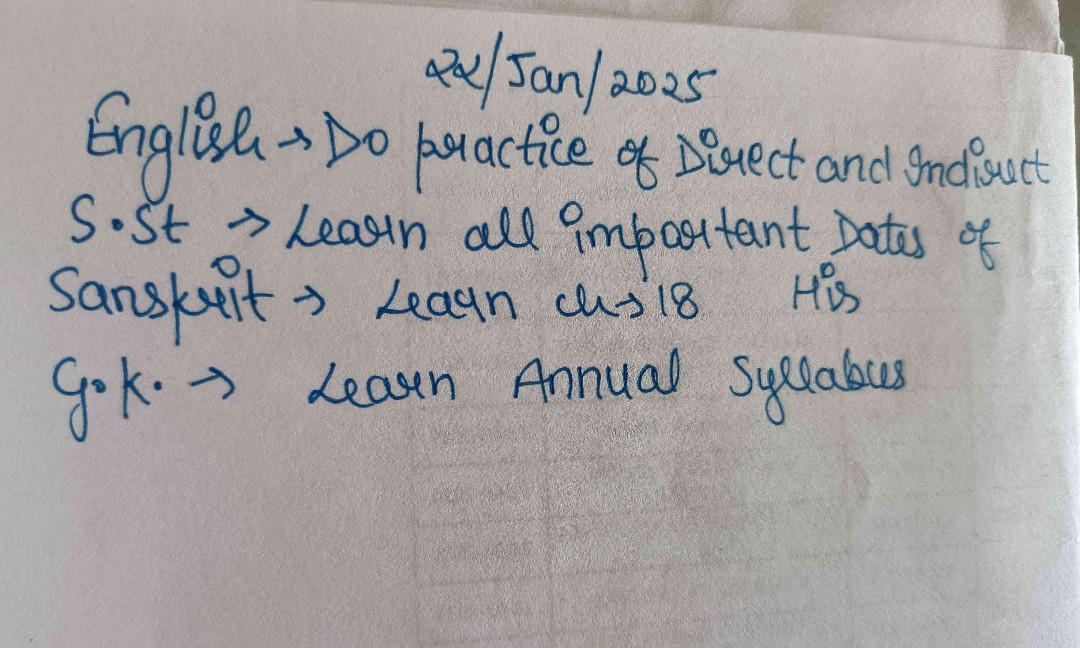 22/Jan/2025
English → Do practice of Direct and Indirect
S.St → Learn all important Dates of
Sanskrit → Learn ch → 18 His
G.K. → Learn Annual Syllabus